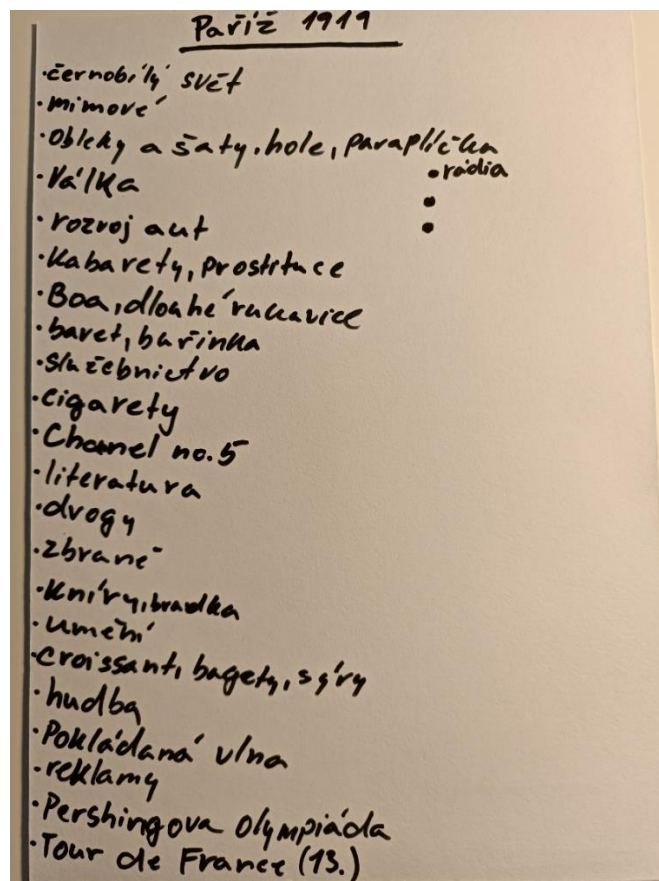 Paříž 1919
·černobílý svět
·mimové
·Obleky a šaty, hole, paraplíčka
·Válka
•rádia
•
·rozvoj aut
•
·Kabarety, prostituce
·Boa, dlouhé rukavice
·baret, buřinka
·služebnictvo
·cigarety
·Channel no.5
·literatura
·drogy
·zbraně
·Kníry, bradka
·umění
·croissant, bagety, sýry
·hudba
·Pokládaná vlna
·reklamy
·Pershingova Olympiáda
·Tour de France (13.)